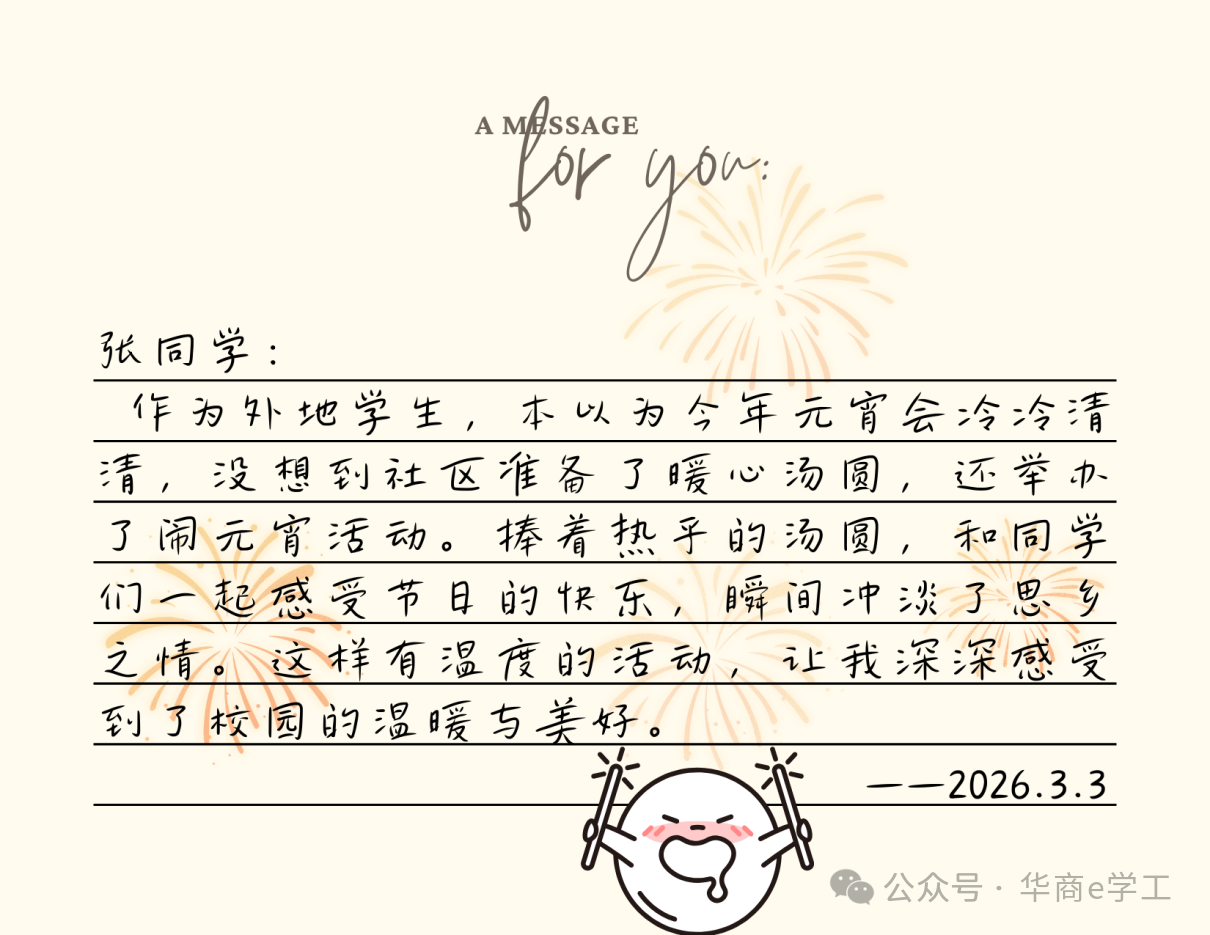 A MESSAGE
for you:
张同学：
作为外地学生，本以为今年元宵会冷冷清
清，没想到社区准备了暖心汤圆，还举办
了闹元宵活动。捧着热乎的汤圆，和同学
们一起感受节日的快乐，瞬间冲淡了思乡
之情。这样有温度的活动，让我深深感受
到了校园的温暖与美好。
——2026.3.3
公众号·华商e学工